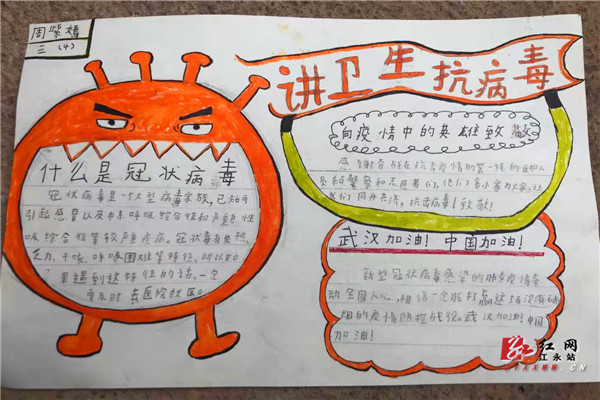 周紫嫣
三（4）
讲卫生抗病毒
什么是冠状病毒
冠状病毒是一个大型病毒家族，已知可
引起感冒以及中东呼吸综合征和严重急性
呼吸综合征等较严重疾病。冠状毒有发热、
乏力、干咳、呼吸困难等特征，所以如
果遇到这特征的话，一定
要及时去医院就医。
向疫情中的英雄致敬
感谢奋战在抗击疫情的第一线的医护人
员和警察和志愿者们，他们舍小家为大家，让
我们同舟共济，抗击病毒！致敬！
武汉加油！中国加油！
新型冠状病毒感染的肺炎疫情牵
动全国人心，相信一定能打赢这场没有硝
烟的疫情防控战役。武汉加油！中国
加油！
红网
江永站